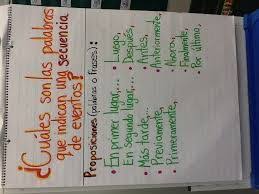 ¿Cuáles son las palabras
que indican una secuencia
de eventos?
Proposiciones (palabras o frases):
• En primer lugar,...
• En segundo lugar,...
• Más tarde...
• Previamente,
• Primeramente,
• Luego,
• Después,
• Antes,
• Anteriormente,
• Ahora,
• Finalmente,
• Por último,